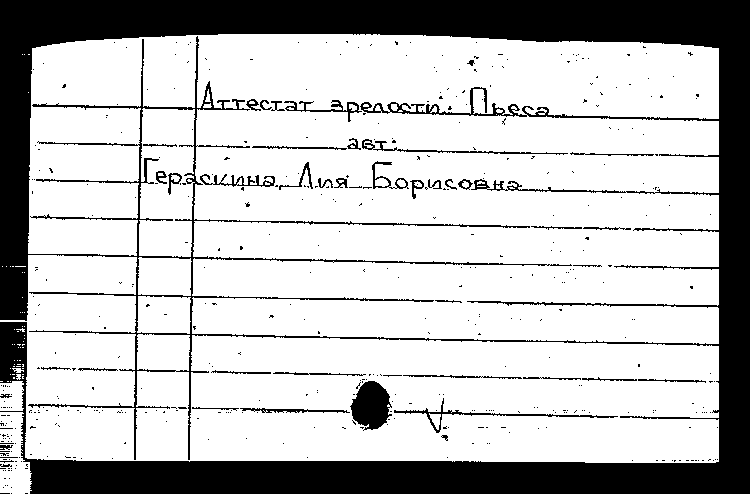 Аттестат зрелости. Пьеса.
авт:
Гераскина, Лия Борисовна.